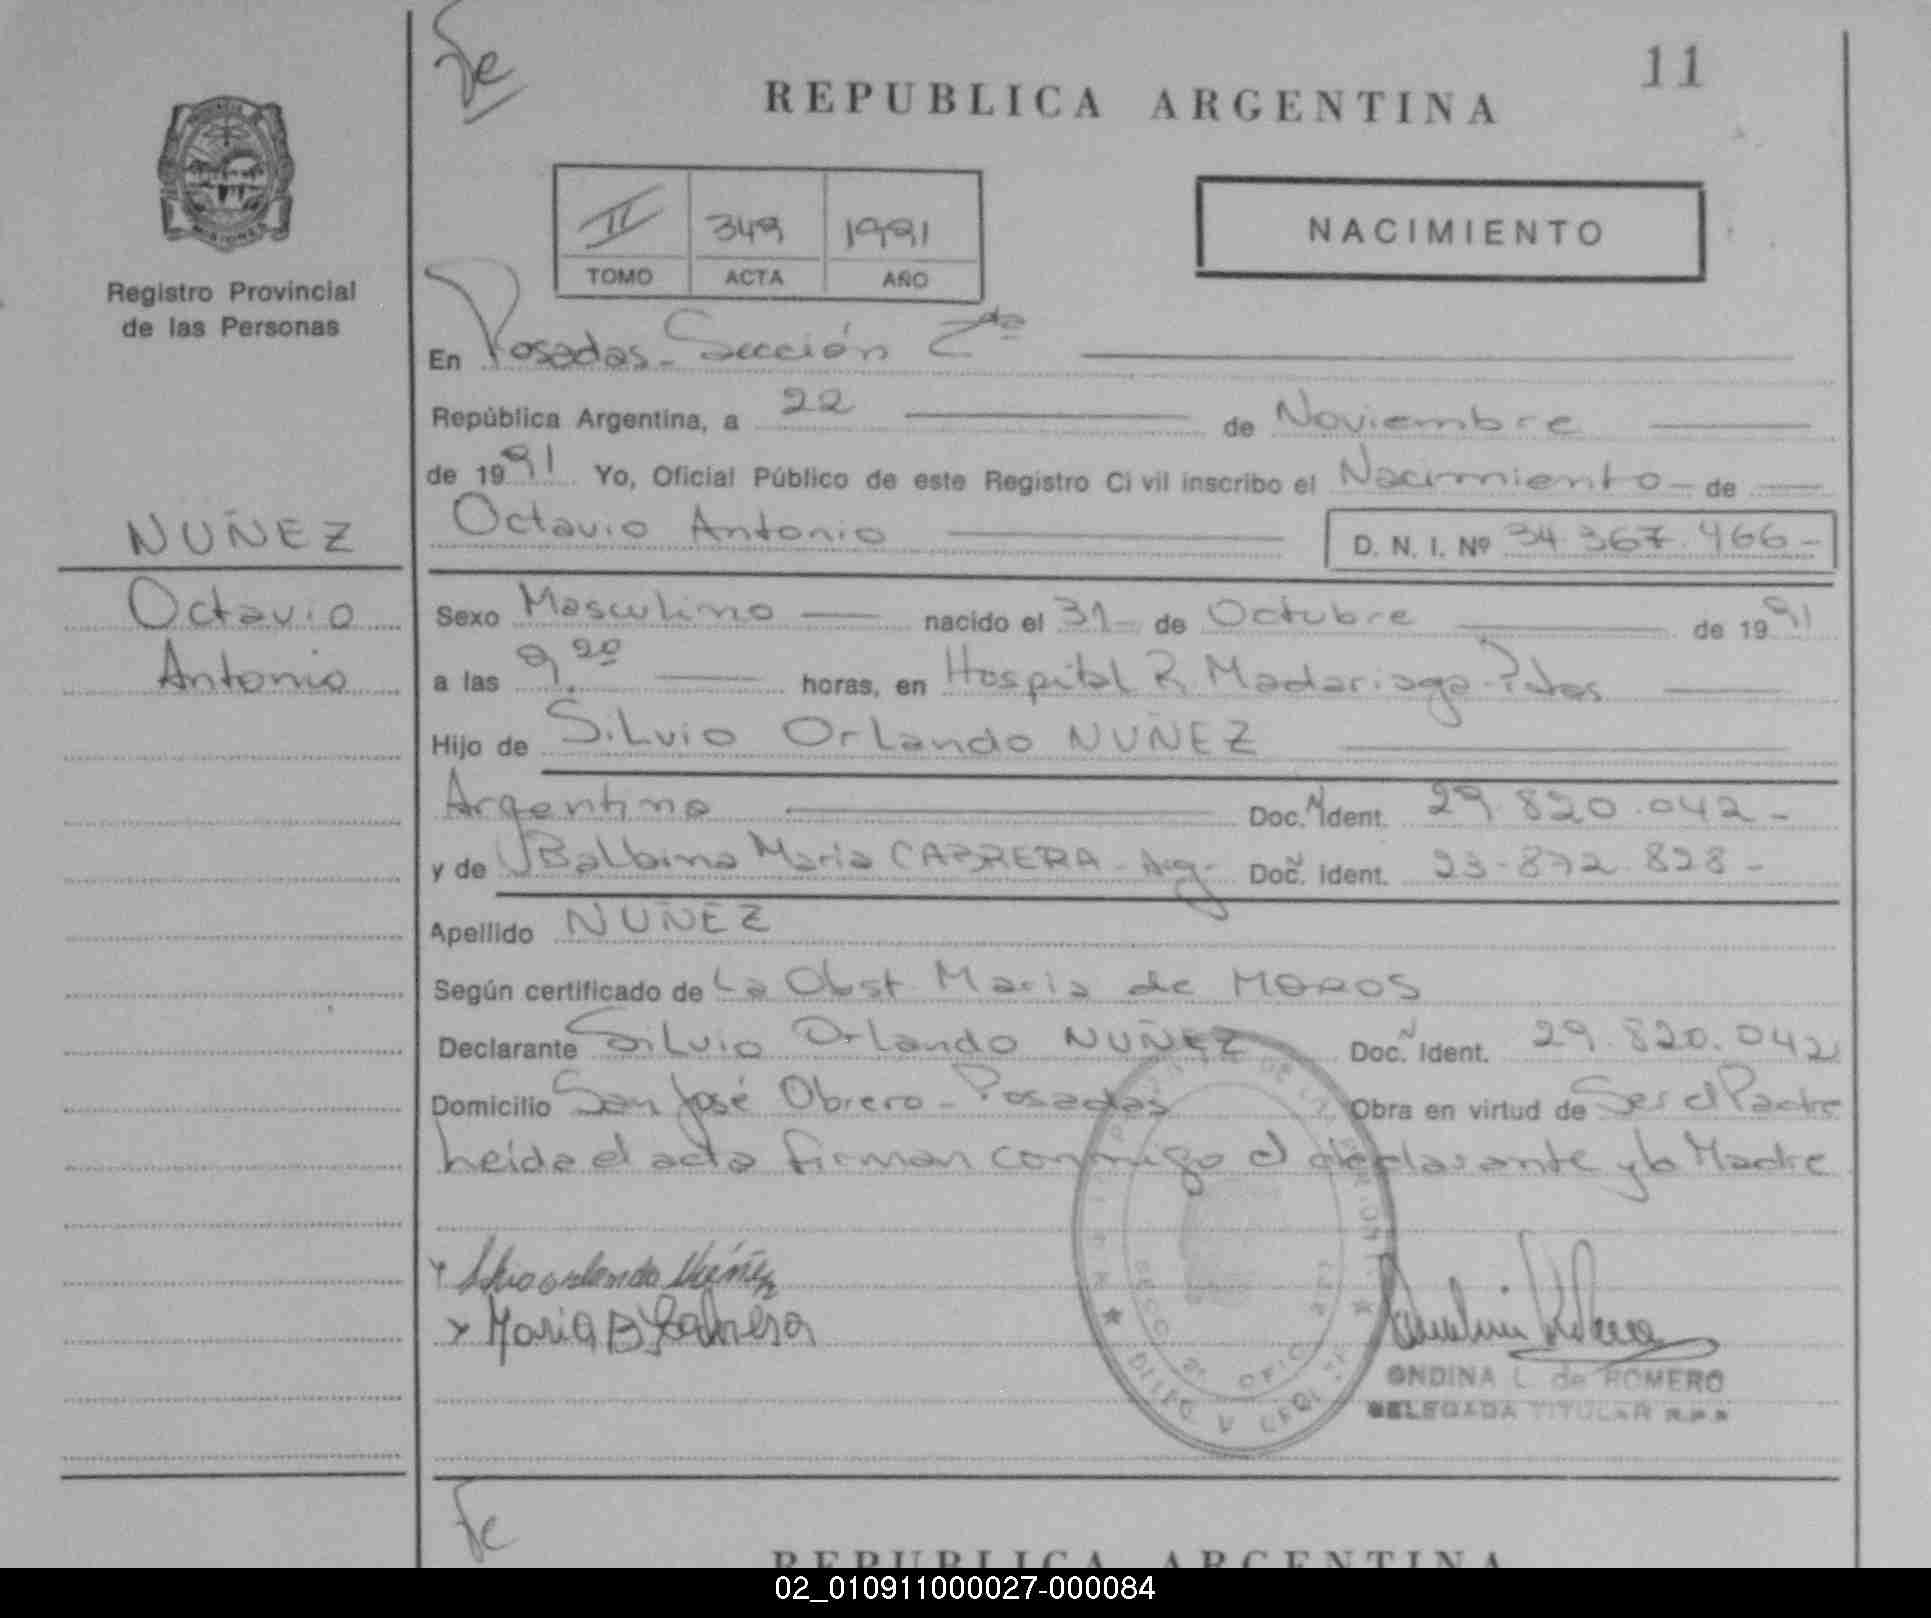 Fe
11
REPUBLICA ARGENTINA
II 349 1991
TOMO ACTA AÑO
NACIMIENTO
MISIONES
Registro Provincial
de las Personas
En Posadas - Sección 2da
República Argentina, a 22 de Noviembre
de 1991 Yo, Oficial Público de este Registro Civil inscribo el Nacimiento - de
Octavio Antonio D. N. I. Nº 34.367.466-
NUÑEZ
Octavio
Antonio
Sexo Masculino nacido el 31 de Octubre de 1991
a las 9,20 horas, en Hospital R. Madariaga - Pdas
Hijo de Silvio Orlando NUÑEZ
Argentino Doc. N Ident. 29.820.042-
y de Balbina Maria CABRERA - Arg- Doc. N Ident. 23-872.828-
Apellido NUÑEZ
Según certificado de La Obst. Maria de MOROS
Declarante Silvio Orlando NUÑEZ Doc. N Ident. 29.820.042
Domicilio San José Obrero - Posadas Obra en virtud de Ser el Padre
Leida el acta firman conmigo el declarante y la Madre
Silvio orlando Nuñez
Maria B Cabrera
ONDINA L. de ROMERO
DELEGADA TITULAR R.P.P.
Fe
REPUBLICA ARGENTINA
02_010911000027-000084